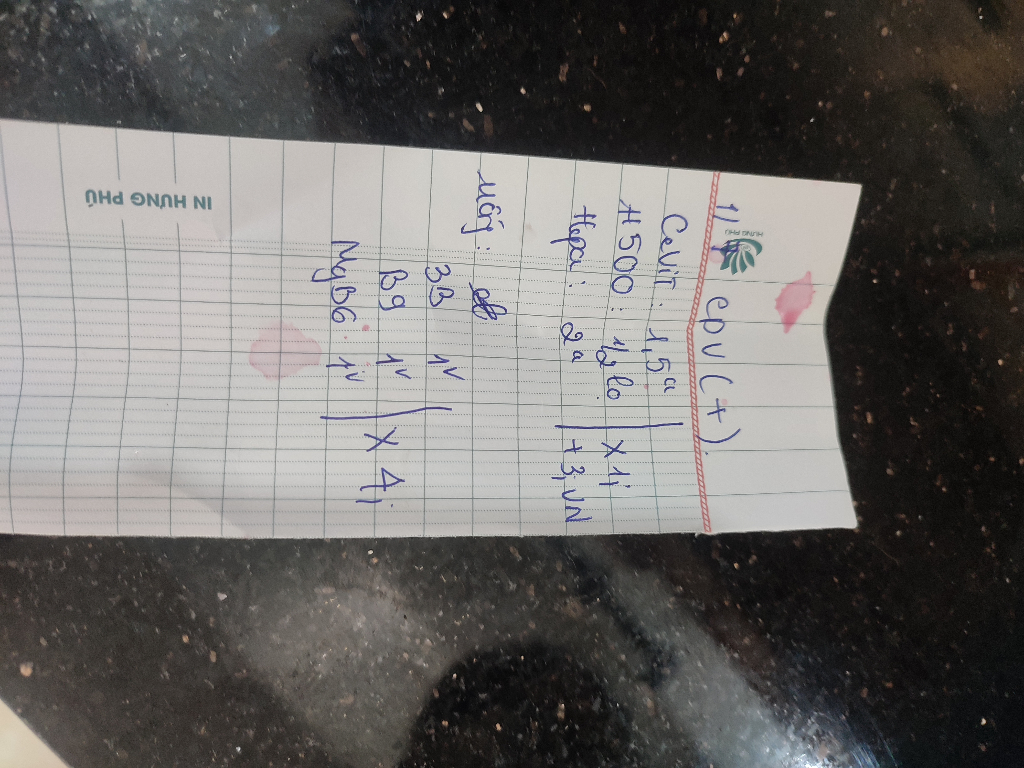 HƯNG PHÚ
1/ CPV (+).
Cevit : 1,5a
H500 : 1/2 lo | x 1j
Hepa : 2a | + 3j VN
Uống :
3B 1v
B9 1v | x 4j
MgB6 1v
IN HƯNG PHÚ